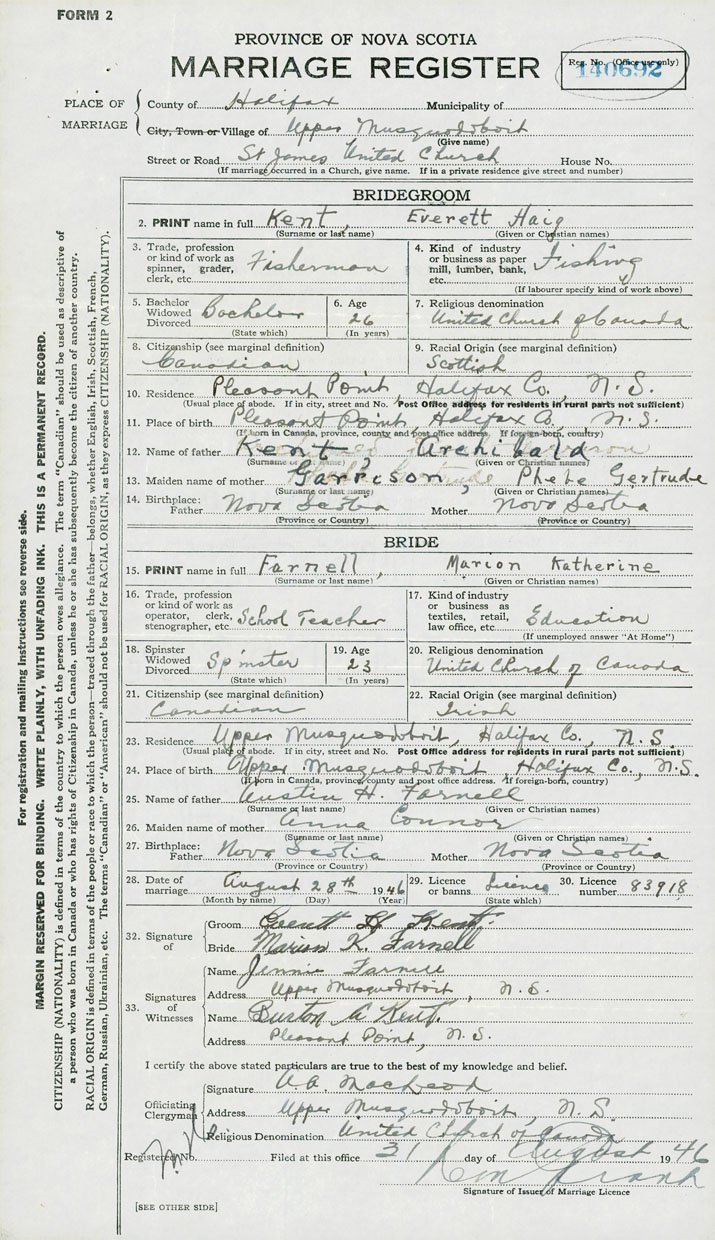 FORM 2
PROVINCE OF NOVA SCOTIA
MARRIAGE REGISTER
Reg. No. (Office use only)
140692
PLACE OF MARRIAGE
County of Halifax Municipality of
City, Town or Village of Upper Musquodoboit
(Give name)
Street or Road St James United Church House No.
(If marriage occurred in a Church, give name. If in a private residence give street and number)
BRIDEGROOM
2. PRINT name in full Kent, Everett Haig
(Surname or last name) (Given or Christian names)
3. Trade, profession or kind of work as spinner, grader, clerk, etc. Fisherman
4. Kind of industry or business as paper mill, lumber, bank, etc. Fishing
(If labourer specify kind of work above)
5. Bachelor Widowed Divorced Bachelor
(State which)
6. Age 26
(In years)
7. Religious denomination
United Church of Canada
8. Citizenship (see marginal definition)
Canadian
9. Racial Origin (see marginal definition)
Scottish
10. Residence Pleasant Point, Halifax Co., N. S.
(Usual place of abode. If in city, street and No. Post Office address for residents in rural parts not sufficient)
11. Place of birth Pleasant Point, Halifax Co., N. S.
(If born in Canada, province, county and post office address. If foreign-born, country)
12. Name of father Kent, Archibald
(Surname or last name) (Given or Christian names)
13. Maiden name of mother Garrison, Phebe Gertrude
(Surname or last name) (Given or Christian names)
14. Birthplace: Father Nova Scotia Mother Nova Scotia
(Province or Country) (Province or Country)
BRIDE
15. PRINT name in full Farnell, Marion Katherine
(Surname or last name) (Given or Christian names)
16. Trade, profession or kind of work as operator, clerk, stenographer, etc. School Teacher
17. Kind of industry or business as textiles, retail, law office, etc. Education
(If unemployed answer "At Home")
18. Spinster Widowed Divorced Spinster
(State which)
19. Age 23
(In years)
20. Religious denomination
United Church of Canada
21. Citizenship (see marginal definition)
Canadian
22. Racial Origin (see marginal definition)
Irish
23. Residence Upper Musquodoboit, Halifax Co., N. S.
(Usual place of abode. If in city, street and No. Post Office address for residents in rural parts not sufficient)
24. Place of birth Upper Musquodoboit, Halifax Co., N.S.
(If born in Canada, province, county and post office address. If foreign-born, country)
25. Name of father Austin H. Farnell
(Surname or last name) (Given or Christian names)
26. Maiden name of mother Anna Connor
(Surname or last name) (Given or Christian names)
27. Birthplace: Father Nova Scotia Mother Nova Scotia
(Province or Country) (Province or Country)
28. Date of marriage August 28th 1946
(Month by name) (Day) (Year)
29. Licence or banns Licence
(State which)
30. Licence number 83918
32. Signature of
Groom Everett H Kent.
Bride Marion K. Farnell
33. Signatures of Witnesses
Name Jennie Farnell
Address Upper Musquodoboit, N. S.
Name Burton A Kent.
Address Pleasant Point, N. S.
I certify the above stated particulars are true to the best of my knowledge and belief.
Officiating Clergyman
Signature A. A. MacLeod
Address Upper Musquodoboit, N. S.
Religious Denomination United Church of Canada
Registered No. Filed at this office 31 day of August 1946
Signature of Issuer of Marriage Licence
[SEE OTHER SIDE]
For registration and mailing instructions see reverse side.
MARGIN RESERVED FOR BINDING. WRITE PLAINLY, WITH UNFADING INK. THIS IS A PERMANENT RECORD.
CITIZENSHIP (NATIONALITY) is defined in terms of the country to which the person owes allegiance. The term "Canadian" should be used as descriptive of
a person who was born in Canada or who has rights of Citizenship in Canada, unless he or she has subsequently become the citizen of another country.
RACIAL ORIGIN is defined in terms of the people or race to which the person—traced through the father—belongs, whether English, Irish, Scottish, French,
German, Russian, Ukrainian, etc. The terms "Canadian" or "American" should not be used for RACIAL ORIGIN, as they express CITIZENSHIP (NATIONALITY).